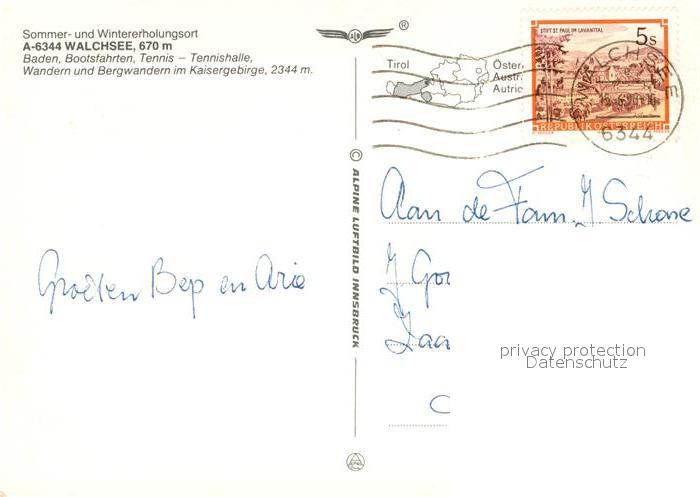 Sommer- und Wintererholungsort
A-6344 WALCHSEE, 670 m
Baden, Bootsfahrten, Tennis – Tennishalle,
Wandern und Bergwandern im Kaisergebirge, 2344 m.
®
Tirol
Öster
Austr
Autric
STIFT ST. PAUL IM LAVANTTAL
5s
REPUBLIK ÖSTERREICH
6344
© ALPINE LUFTBILD INNSBRUCK
Aan de Fam. J Schone
J Go
Zaa
Groeten Bep en Arie
privacy protection
Datenschutz